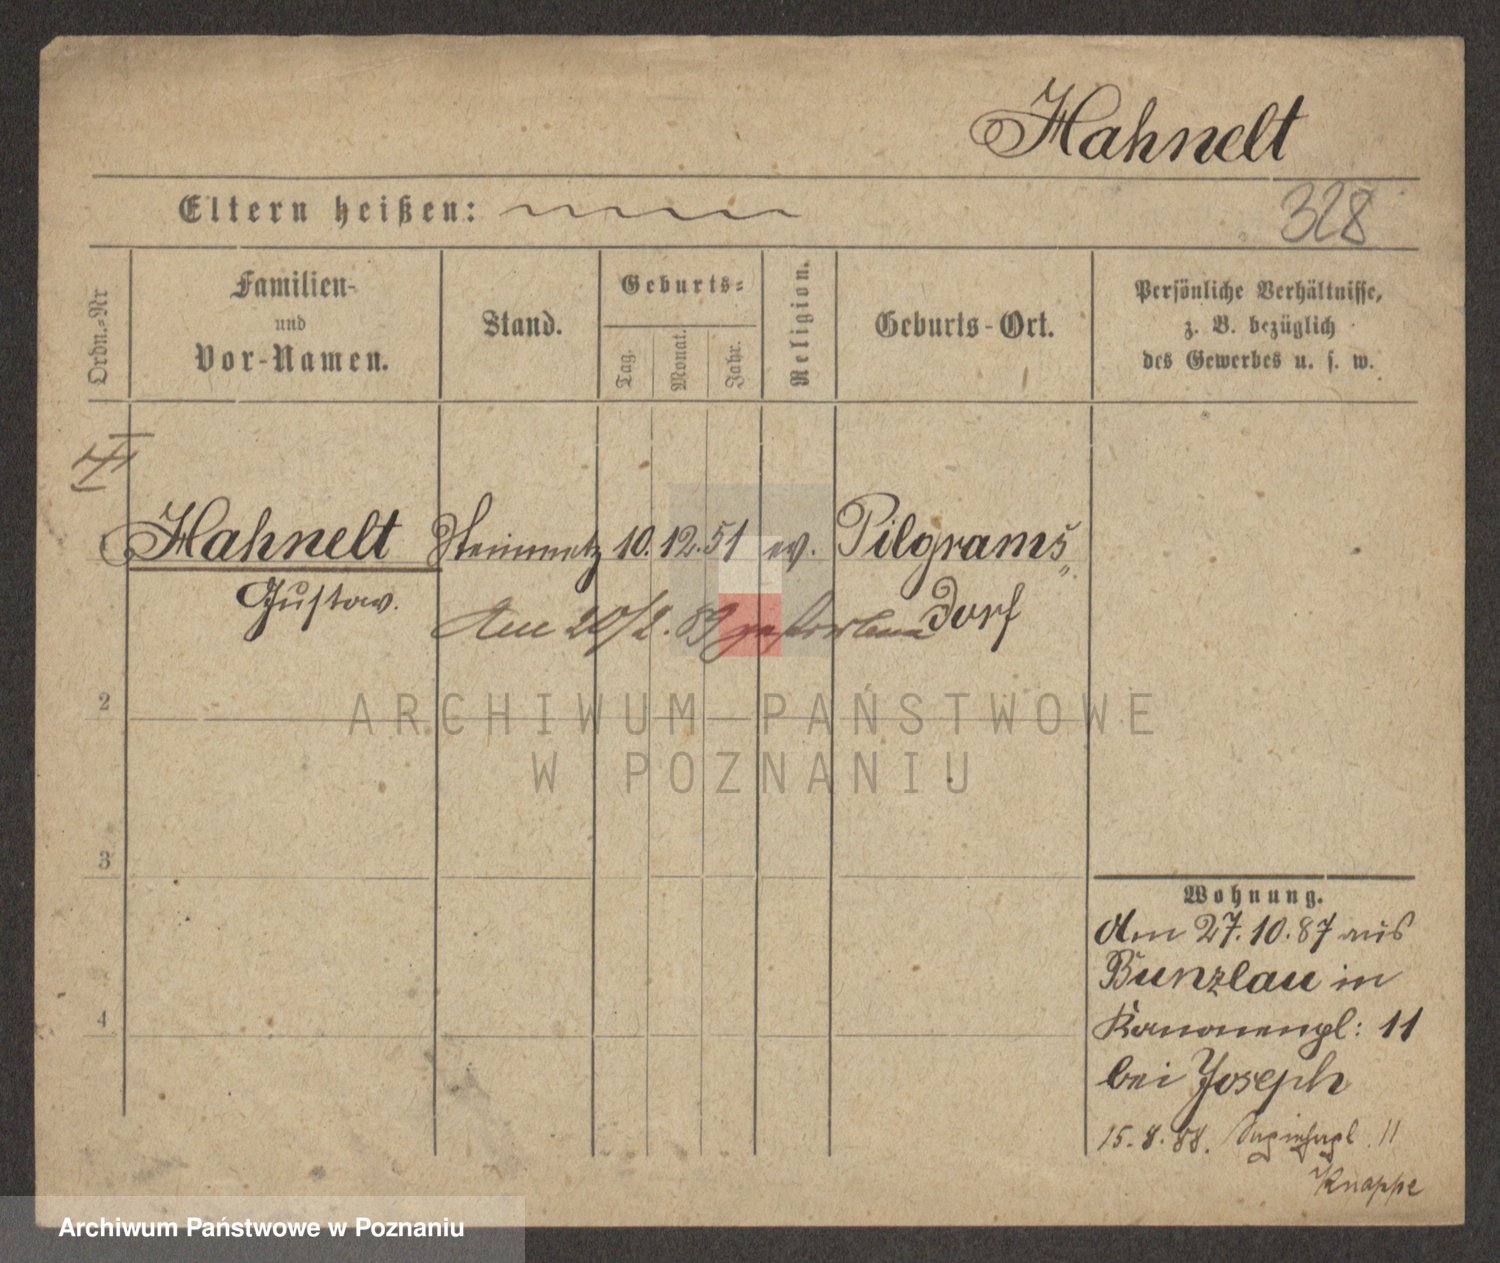 Hahnelt
328
Eltern heißen:
Ordn.=Nr
Familien-
und
Vor-Namen.
Stand.
Geburts=
Tag.
Monat.
Jahr.
Religion.
Geburts-Ort.
Persönliche Verhältnisse,
z. B. bezüglich
des Gewerbes u. s. w.
Hahnelt Steinmetz 10. 12. 51 ev. Pilgrams
Gustav. dorf
Am 20/2. 89 gestorben
2
ARCHIWUM PAŃSTWOWE
W POZNANIU
3
4
Wohnung.
Am 27. 10. 87 aus
Bunzlau in
Kanonenpl: 11
bei Joseph
15. 8. 88. 11
Knappe
Archiwum Państwowe w Poznaniu